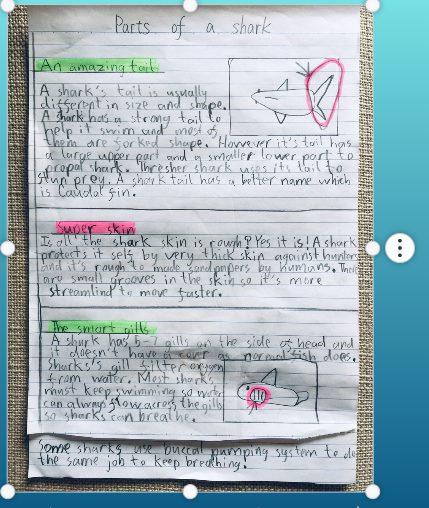 Parts of a shark
An amazing tail
A shark's tail is usually
different in size and shape.
A shark has a strong tail to
help it swim and most of
them are forked shape. However it's tail has
a large upper part and a smaller lower part to
propal shark. Thresher shark uses its tail to
stun prey. A shark tail has a better name which
is Caudal fin.
Super skin
Is all the shark skin is rough? Yes it is! A shark
protects it self by very thick skin against hunters
and it's rough to made sandpapers by humans. There
are small grooves in the skin so it's more
streamlind to move faster.
The smart gills
A shark has 5-7 gills on the side of head and
it doesn't have a cover as normal fish does.
Sharks's gill filter oxygen
from water. Most sharks
must keep swimming so water
can always flow across the gills
so sharks can breathe.
Some sharks use buccal pumping system to do
the same job to keep breathing.